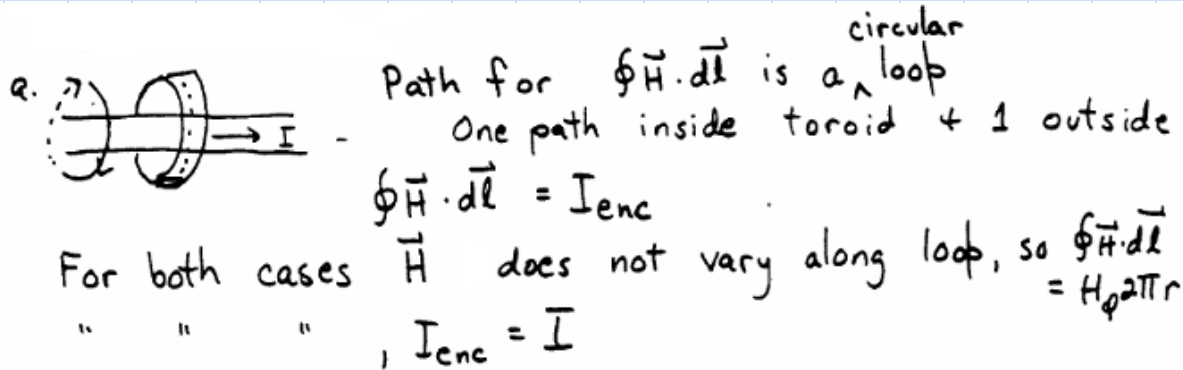 circular
a. Path for ∮H⃗·dl⃗ is a ^ loop
→ I - One path inside toroid + 1 outside
∮H⃗·dl⃗ = Ienc
For both cases H⃗ does not vary along loop, so ∮H⃗·dl⃗
= Hφ2πr
" " " , Ienc = I